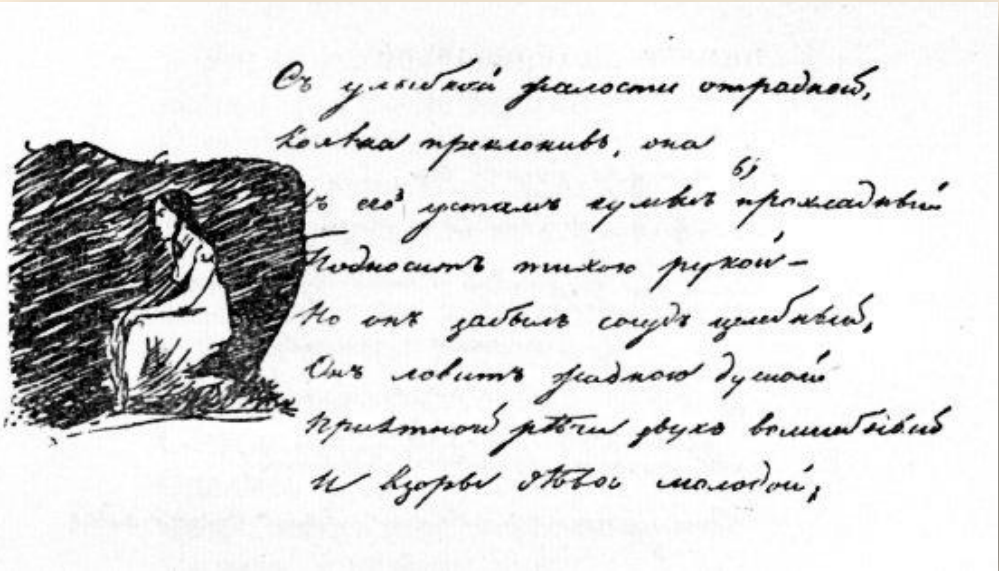 Съ улыбкой жалости отрадной,
Колѣна преклонивъ, она
Къ его устамъ кумысъ 6) прохладный
Подноситъ тихою рукой —
Но онъ забылъ сосудъ целебный,
Онъ ловитъ жадною душой
Приятной рѣчи звукъ волшебный
И взоры дѣвы молодой,